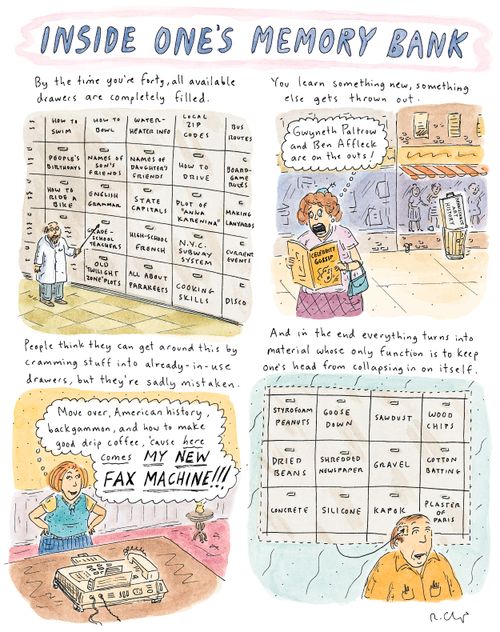 INSIDE ONE'S MEMORY BANK
By the time you're forty, all available
drawers are completely filled.
HOW TO
SWIM
HOW TO
BOWL
WATER-
HEATER INFO
LOCAL
ZIP
CODES
BUS
ROUTES
PEOPLE'S
BIRTHDAYS
NAMES OF
SON'S
FRIENDS
NAMES OF
DAUGHTER'S
FRIENDS
HOW TO
DRIVE
BOARD-
GAME
RULES
HOW TO
RIDE A
BIKE
ENGLISH
GRAMMAR
STATE
CAPITALS
PLOT OF
"ANNA
KARENINA"
MAKING
LANYARDS
GRADE-
SCHOOL
TEACHERS
HIGH-SCHOOL
FRENCH
N.Y.C.
SUBWAY
SYSTEM
CURRENT
EVENTS
OLD
"TWILIGHT
ZONE" PLOTS
ALL ABOUT
PARAKEETS
COOKING
SKILLS
DISCO
You learn something new, something
else gets thrown out.
Gwyneth Paltrow
and Ben Affleck
are on the outs!
CELEBRITY
GOSSIP
ART
HISTORY
People think they can get around this by
cramming stuff into already-in-use
drawers, but they're sadly mistaken.
Move over, American history,
backgammon, and how to make
good drip coffee, 'cause here
comes MY NEW
FAX MACHINE!!!
And in the end everything turns into
material whose only function is to keep
one's head from collapsing in on itself.
STYROFOAM
PEANUTS
GOOSE
DOWN
SAWDUST
WOOD
CHIPS
DRIED
BEANS
SHREDDED
NEWSPAPER
GRAVEL
COTTON
BATTING
CONCRETE
SILICONE
KAPOK
PLASTER
OF
PARIS
R. Chz